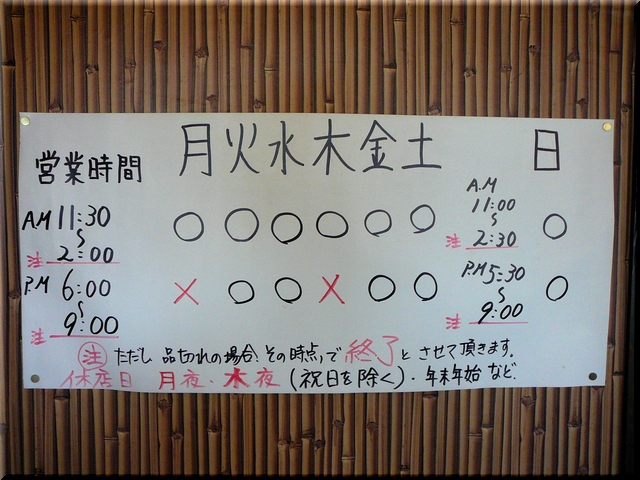 営業時間 月火水木金土 日
AM 11:30 〜 注 2:00 ○ ○ ○ ○ ○ ○ A.M 11:00 〜 注 2:30 ○
P.M 6:00 〜 注 9:00 × ○ ○ × ○ ○ P.M 5:30 〜 注 9:00 ○
注 ただし 品切れの場合、その時点で終了とさせて頂きます。
休店日 月夜・木夜(祝日を除く)・年末年始など